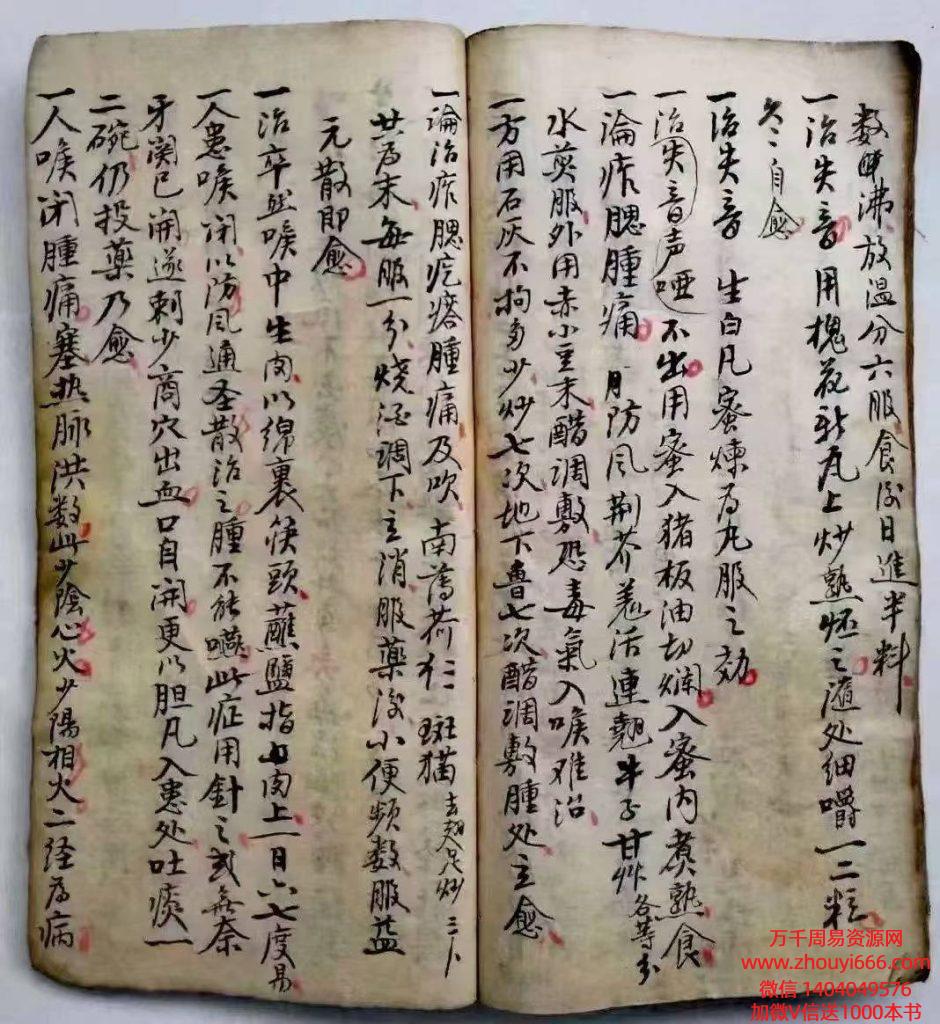 数沸放温分六服食后日進半料
一治失音用槐花新瓦上炒熟怀之隨处细嚼一二粒
久久自愈
一治失音 生白凡蜜煉为丸服之効
一治失音声啞不出用蜜入猪板油切爛入蜜内煮熟食
一論痄腮腫痛 用防风荆芥羌活連翹牛子甘艸各等分
水煎服外用赤小豆末醋調敷恐毒氣入喉难治
一方用石灰不拘多少炒七次地下七次醋調敷腫处立愈
一論治痄腮疙瘩腫痛及吹 南薄荷仁 斑猫去翅足炒三卜
共为末每服一分烧酒調下立消服藥後小便頻数服益
元散即愈
一治卒然喉中生肉以绵裹筷頭蘸鹽指肉上一日六七度易
一人患喉闭以防风通圣散治之腫不能嚥此症用針之或無奈
牙関已開遂刺少商穴出血口自開更以胆凡入患处吐痰一
二碗仍投藥乃愈
一人喉闭腫痛塞热脉洪数此少陰心火少陽相火二经为病
万千周易资源网
www.zhouyi666.com
微信 1404049576
加微V信送1000本书